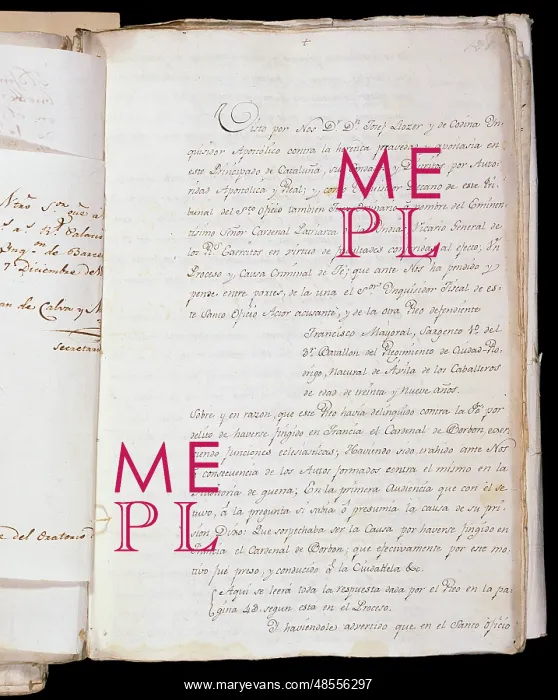 Niño S.or que a
7 Diciembre de
an de Calva y M
Secretari
e del Oratorio
Visto por Nos Dr. Dn. Josef Llozer y de Codina In-
quisidor Apostólico contra la heretica pravedad y apostasía en
este Principado de Cataluña, y Distritos por Auto-
ridad Apostólica y Real; y como Inquisidor Decano de este Tri-
bunal del Sto. Oficio tambien Ordinario á nombre del Eminen-
tísimo Señor Cardenal Patriarca Indias Vicario General de
los Rs. Exercitos en virtud de facultades conferidas al efecto; Un
Proceso y Causa Criminal de Fe; que ante Nos ha pendido y
pende entre partes, de la una el Sor. Inquisidor Fiscal de es-
te Santo Oficio Actor acusante, y de la otra Reo defendiente
Francisco Mayoral, Sargento 1o. del
3r. Batallon del Regimiento de Ciudad-Ro-
drigo, Natural de Ávila de los Caballeros
de edad de treinta y nueve años.
Sobre y en razon, que este Reo havia delinquido contra la Fe por
delito de haverse fingido en Francia el Cardenal de Borbon, exer-
ciendo funciones eclesiasticas; Haviendo sido trahido ante Nos
á consecuencia de los Autos formados contra el mismo en la
Auditoria de guerra; En la primera Audiencia que con él se
tuvo, á la pregunta si sabia ó presumia la causa de su pri-
sion Dixo: Que sospechaba ser la Causa por haverse fingido en
Francia el Cardenal de Borbon; que efectivamente por este mo-
tivo fue preso, y conducido á la Ciudadela &c.
Aqui se leerá toda la respuesta dada por el Reo en la pa-
gina 48 segun esta en el Proceso.
Y haviendole advertido que en el Santo Oficio
ME
PL
ME
PL
www.maryevans.com/48556297